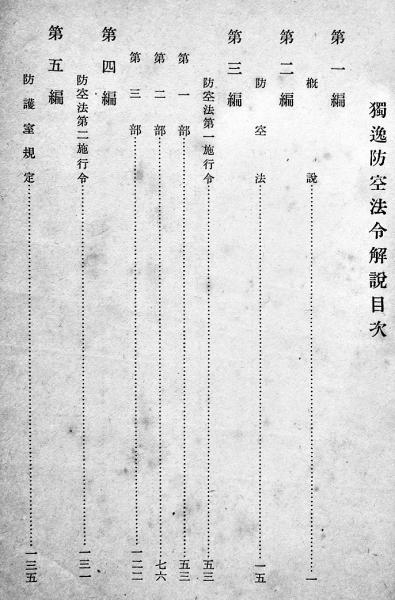 獨逸防空法令解說目次
第一編
概說……一
第二編
防空法……一五
第三編
防空法第一施行令……五三
第一部……五三
第二部……七六
第三部……一二二
第四編
防空法第二施行令……一三一
第五編
防護室規定……一三五